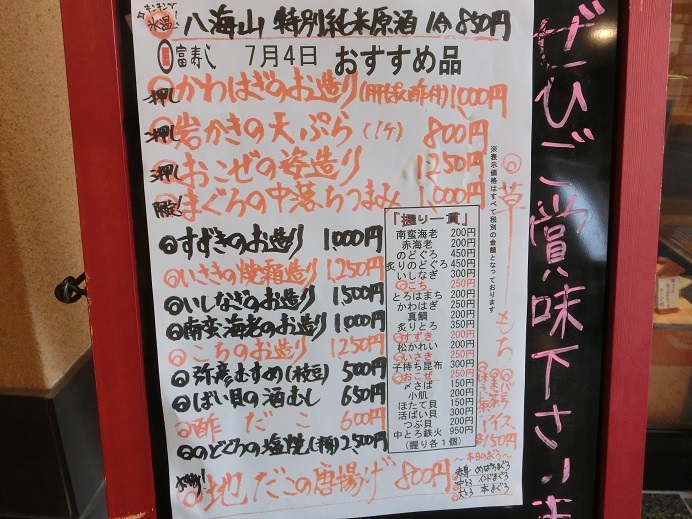 キンキンに
氷温!
八海山 特別純米原酒 1合 850円
富寿し 7月4日 おすすめ品
押し かわはぎのお造り(肝ポン酢付) 1000円
押し 岩かきの天ぷら(1ケ) 800円
押し おこぜの姿造り 1250円
限定! まぐろの中落ちつまみ 1000円
◎すずきのお造り 1000円
◎いさきの焼霜造り 1250円
◎いしなぎのお造り 1500円
◎南蛮海老のお造り 1000円
◎こちのお造り 1250円
◎弥彦むすめ(枝豆) 500円
◎ばい貝の酒むし 650円
◎酢だこ 600円
◎のどぐろの塩焼(半身) 2,500円
地だこの唐揚げ 800円
『握り一貫』
南蛮海老 200円
赤海老 200円
のどぐろ 450円
炙りのどぐろ 450円
いしなぎ 300円
◎こち 250円
とろはまち 200円
かわはぎ 250円
真鯛 200円
炙りとろ 350円
◎すずき 200円
松かれい 200円
◎いさき 250円
子持ち昆布 300円
◎おこぜ 250円
〆さば 150円
小肌 200円
ほたて貝 150円
活ばい貝 300円
つぶ貝 200円
中とろ鉄火 950円
(握り各1個)
※表示価格はすべて税別の金額となっております
◎草もち
アイス
各150円
~本日のまぐろ~
赤身 めばちまぐろ
中とろ インドまぐろ
大とろ 本まぐろ
ぜひご賞味下さいま